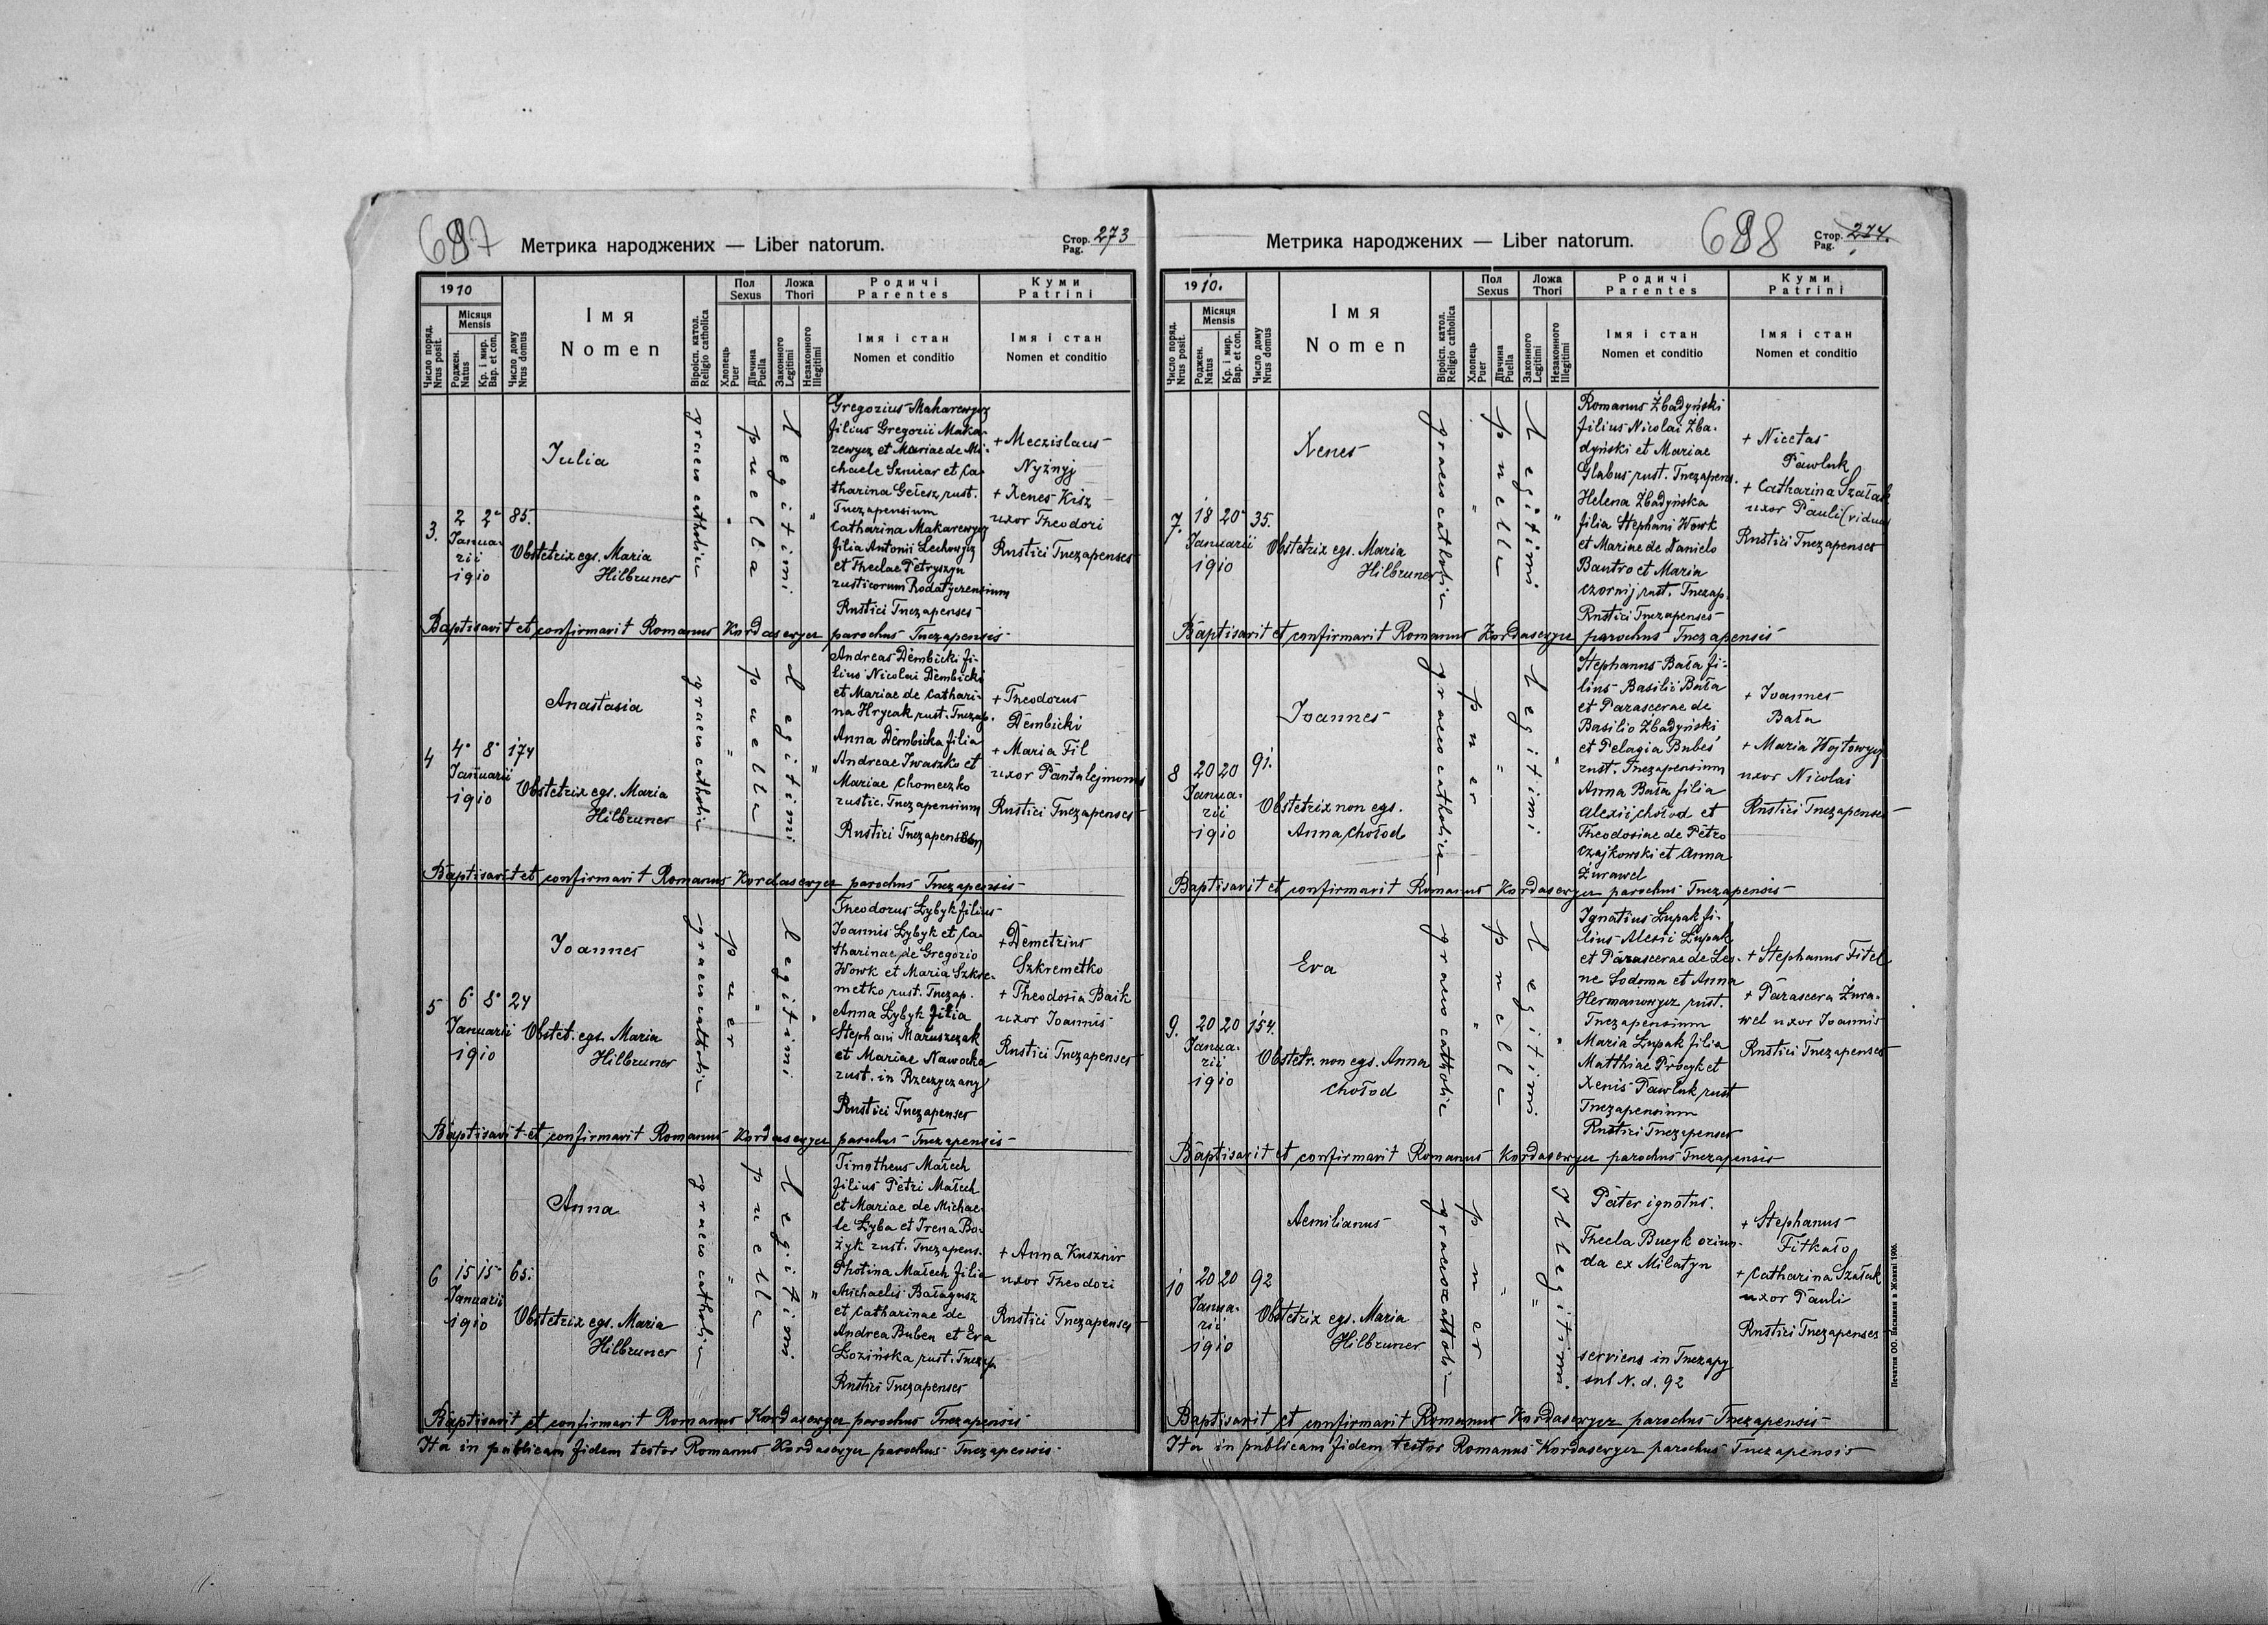 697
Метрика народжених — Liber natorum.
Стор. Pag. 273
1910
Число поряд. Nrus posit.
Місяця Mensis
Роджен. Natus
Кр. і мир. Bap. et con.
Число дому Nrus domus
Імя
Nomen
Віроісп. катол. Religio catholica
Пол Sexus
Хлопець Puer
Дївчина Puella
Ложа Thori
Законного Legitimi
Незаконного Illegitimi
Родичі
Parentes
Імя і стан
Nomen et conditio
Куми
Patrini
Імя і стан
Nomen et conditio
3.
2 2
Janua-
rii
1910
85.
Julia
Obstetrix egs. Maria
Hilbruner
graeco catholica
puella
Legitimi
Gregorius Makarewycz
filius Gregorii Maka-
rewycz et Mariae de Mi-
chaele Sznicar et Ca-
tharina Gelesz rust.
Tuczapensium
Catharina Makarewycz
filia Antonii Lechowycz
et Theclae Petryszyn
rusticorum Rodatyczensium
Rustici Tuczapenses
+ Meczislaus
Nyżnyj
+ Xenes Kisz
uxor Theodori
Rustici Tuczapenses
Baptisavit et confirmavit Romanus Kordasewycz parochus Tuczapensis
4
4 8
Januarii
1910
174
Anastasia
Obstetrix egs. Maria
Hilbruner
graeco catholic
puella
Legitimi
Andreas Dembicki fi-
lius Nicolai Dembicki
et Mariae de Cathari-
na Hrycak rust. Tuczap.
Anna Dembicka filia
Andreae Iwaszko et
Mariae Chomeczko
rustic. Tuczapensium
Rustici Tuczapenses
+ Theodorus
Dembicki
+ Maria Fil
uxor Pantalejmonis
Rustici Tuczapenses
Baptisavit et confirmavit Romanus Kordasewycz parochus Tuczapensis
5
6 8
Januarii
1910
24
Joannes
Obstet. egs. Maria
Hilbruner
graeco catholic
puer
legitimi
Theodorus Łybyk filius
Joannis Łybyk et Ca-
tharinae de Gregorio
Wowk et Maria Szkre-
metko rust. Tuczap.
Anna Łybyk filia
Stephani Maruszczak
et Mariae Nawocka
rust. in Rzeczyczany
Rustici Tuczapenses
+ Demetrius
Szkremetko
+ Theodosia Baik
uxor Joannis
Rustici Tuczapenses
Baptisavit et confirmavit Romanus Kordasewycz parochus Tuczapensis
6
15 15
Januarii
1910
65.
Anna
Obstetrix egs. Maria
Hilbruner
graeco catholic
puella
Legitimi
Timotheus Małech
filius Petri Małech
et Mariae de Michae-
le Łyba et Irena Bo-
żyk rust. Tuczapens.
Photina Małech filia
Michaelis Bałagusz
et Catharinae de
Andrea Buben et Eva
Łozińska rust. Tuczap
Rustici Tuczapenses
+ Anna Kusznir
uxor Theodori
Rustici Tuczapenses
Baptisavit et confirmavit Romanus Kordasewycz parochus Tuczapensis
Ita in publicam fidem testor Romanus Kordasewycz parochus Tuczapensis
698
Метрика народжених — Liber natorum.
Стор. Pag. 274.
1910.
Число поряд. Nrus posit.
Місяця Mensis
Роджен. Natus
Кр. і мир. Bap. et con.
Число дому Nrus domus
Імя
Nomen
Віроісп. катол. Religio catholica
Пол Sexus
Хлопець Puer
Дївчина Puella
Ложа Thori
Законного Legitimi
Незаконного Illegitimi
Родичі
Parentes
Імя і стан
Nomen et conditio
Куми
Patrini
Імя і стан
Nomen et conditio
7.
18 20
Januarii
1910
35.
Xenes
Obstetrix egs. Maria
Hilbruner
graeco catholic
puella
Legitimi
Romanus Żbadyński
filius Nicolai Żba-
dyński et Mariae
Glabus rust. Tuczapens.
Helena Żbadyńska
filia Stephani Wowk
et Mariae de Danielo
Bautro et Maria
Czornij rust. Tuczap.
Rustici Tuczapenses
+ Nicetas
Pawluk
+ Catharina Szałak
uxor Pauli (vidua)
Rustici Tuczapenses
Baptisavit et confirmavit Romanus Kordasewycz parochus Tuczapensis
8
20 20
Janua-
rii
1910
91.
Joannes
Obstetrix non egs.
Anna Chołod
graeco catholica
puer
Legitimi
Stephanus Bała fi-
lius Basilii Bała
et Parascevae de
Basilio Żbadyński
et Pelagia Bubeś
rust. Tuczapensium
Anna Bała filia
Alexii Chołod et
Theodosiae de Petro
Czajkowski et Anna
Żurawel
+ Joannes
Bała
+ Maria Wojtowycz
uxor Nicolai
Rustici Tuczapenses
Baptisavit et confirmavit Romanus Kordasewycz parochus Tuczapensis
9.
20 20
Janua-
rii
1910
154.
Eva
Obstetr. non egs. Anna
Chołod
graeco catholic
puella
Legitimi
Ignatius Łupak fi-
lius Alexii Łupak
et Parascevae de Les-
ne Sodoma et Anna
Hermanowycz rust.
Tuczapensium
Maria Łupak filia
Matthiae Procyk et
Xenis Pawluk rust
Tuczapensium
Rustici Tuczapenses
+ Stephanus Fitel
+ Parasceva Żura-
wel uxor Joannis
Rustici Tuczapenses
Baptisavit et confirmavit Romanus Kordasewycz parochus Tuczapensis
10
20 20
Janua-
rii
1910
92
Aemilianus
Obstetrix egs. Maria
Hilbruner
graeco catholic
puer
Illegitimi
Pater ignotus.
Thecla Bucyk oriun-
da ex Milatyn
serviens in Tuczapy
sub N. d. 92
+ Stephanus
Fitkało
+ Catharina Szałak
uxor Pauli
Rustici Tuczapenses
Baptisavit et confirmavit Romanus Kordasewycz parochus Tuczapensis
Ita in publicam fidem testor Romanus Kordasewycz parochus Tuczapensis
Печатня ОО. Василиян в Жовкві 1906.